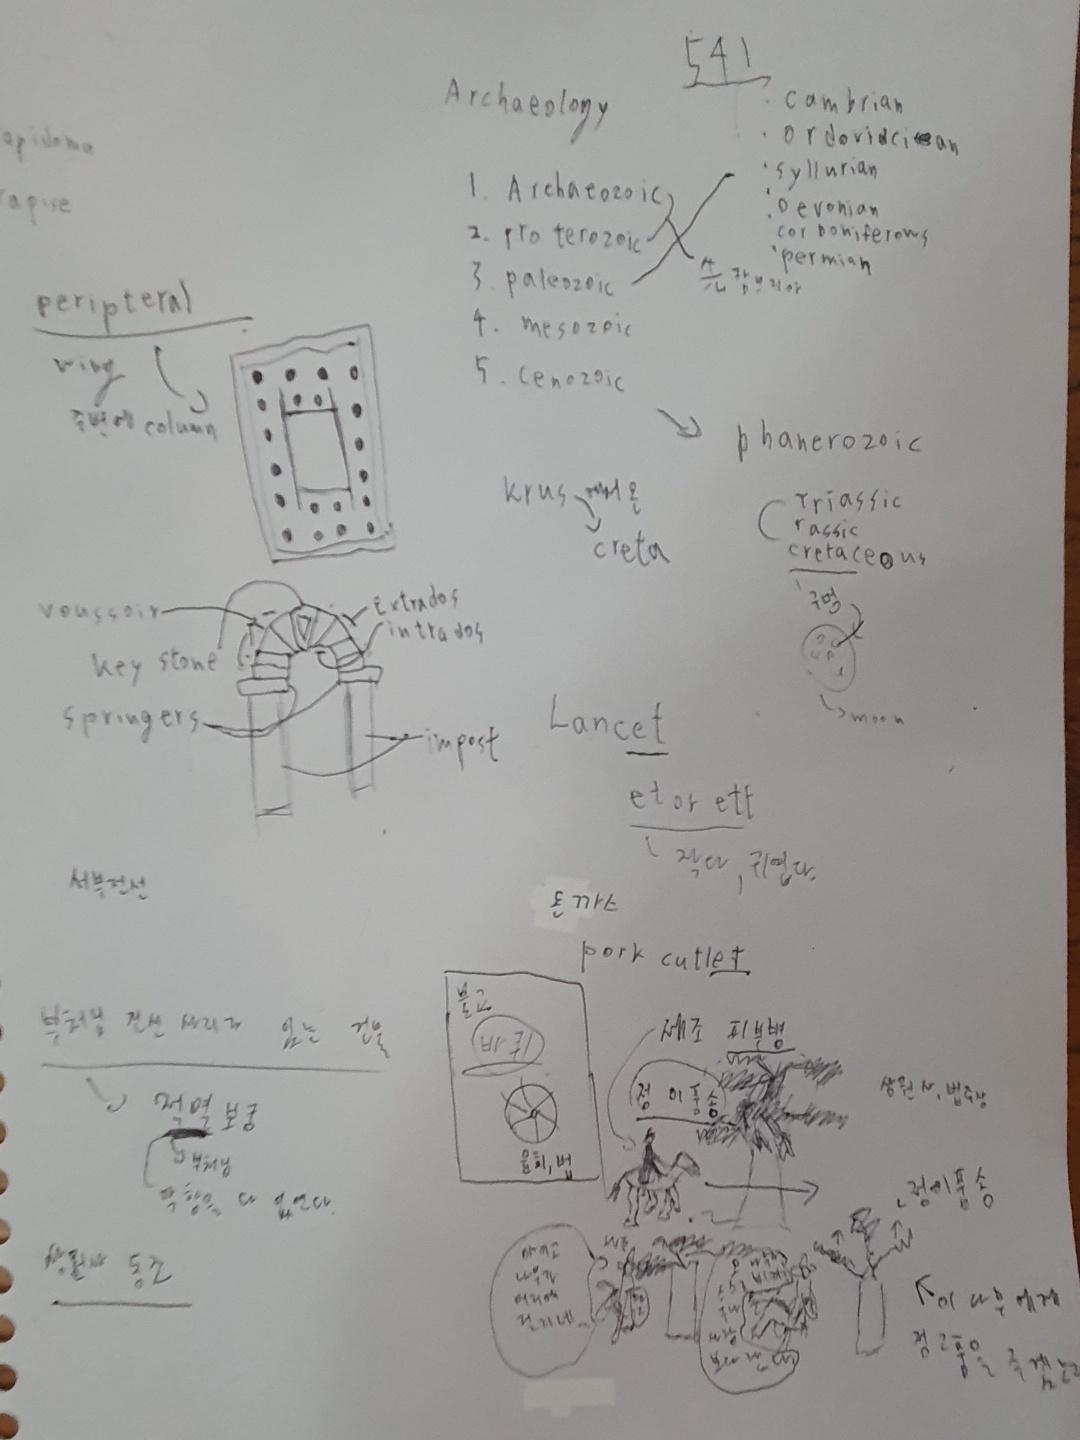 541
Archaeology
cambrian
ordovidcian
syllurian
Devonian
corboniferows
permian
1. Archaeozoic
2. proterozoic
3. paleozoic
4. mesozoic
5. cenozoic
선캄브리아
phanerozoic
apidoma
rapise
peripteral
wing
주변에 column
krus에서 온
creta
Triassic
rassic
cretaceous
구멍
moon
voussoir
key stone
springers
Extrados
intrados
impost
Lancet
et or ett
작다, 귀엽다.
서부전선
돈까스
pork cutlet
불교
바퀴
윤회, 법
세조 피부병
정이품송
상원사, 법주사
정이품송
부처님 진신 사리가 있는 건물
적멸보궁
부처님
다 없앤다.
상원사 동종
아이고
나무가
머리에
걸리네...
이 나무에게